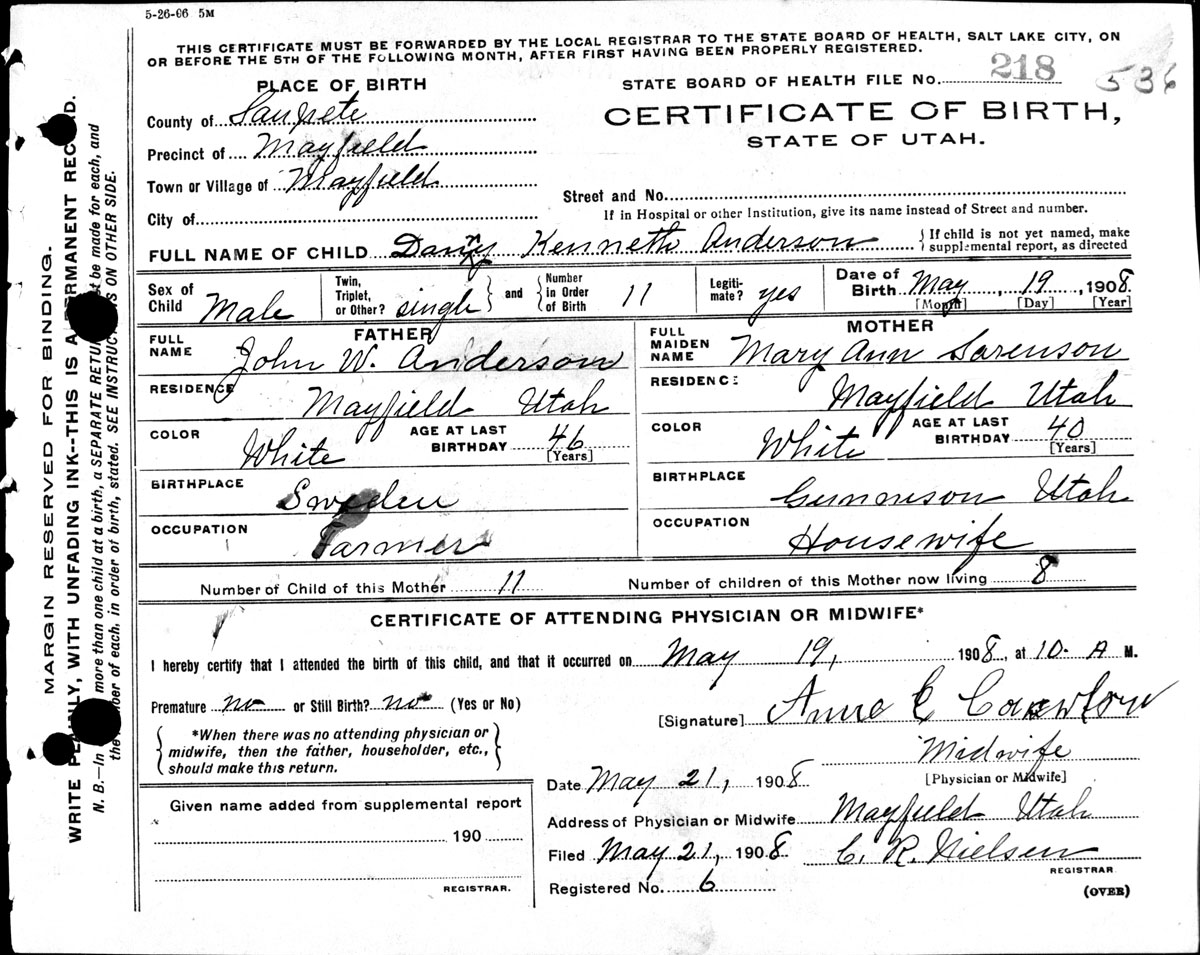 5-26-06 5M
THIS CERTIFICATE MUST BE FORWARDED BY THE LOCAL REGISTRAR TO THE STATE BOARD OF HEALTH, SALT LAKE CITY, ON
OR BEFORE THE 5TH OF THE FOLLOWING MONTH, AFTER FIRST HAVING BEEN PROPERLY REGISTERED.
PLACE OF BIRTH
STATE BOARD OF HEALTH FILE NO. 218 536
County of Sanpete
CERTIFICATE OF BIRTH,
Precinct of Mayfield
STATE OF UTAH.
Town or Village of Mayfield
Street and No.
City of
If in Hospital or other Institution, give its name instead of Street and number.
FULL NAME OF CHILD Kenneth Anderson { If child is not yet named, make supplemental report, as directed
Sex of Child Male
Twin, Triplet, or Other? single } and { Number in Order of Birth 11
Legiti-mate? yes
Date of Birth May, 19, 1908
[Month] [Day] [Year]
FATHER
FULL NAME John W. Anderson
RESIDENCE Mayfield Utah
COLOR White AGE AT LAST BIRTHDAY 46 [Years]
BIRTHPLACE Sweden
OCCUPATION Farmer
MOTHER
FULL MAIDEN NAME Mary Ann Sorenson
RESIDENCE Mayfield Utah
COLOR White AGE AT LAST BIRTHDAY 40 [Years]
BIRTHPLACE Gunnison Utah
OCCUPATION Housewife
Number of Child of this Mother 11 Number of children of this Mother now living 8
CERTIFICATE OF ATTENDING PHYSICIAN OR MIDWIFE*
I hereby certify that I attended the birth of this child, and that it occurred on May 19, 1908, at 10- A M.
Premature no or Still Birth? no (Yes or No)
[Signature] Anne C
*When there was no attending physician or
midwife, then the father, householder, etc.,
should make this return.
Midwife
[Physician or Midwife]
Date May 21, 1908
Given name added from supplemental report
190
REGISTRAR.
Address of Physician or Midwife Mayfield Utah
Filed May 21, 1908 C. R. Nielsen
REGISTRAR
Registered No. 6
(OVER)
MARGIN RESERVED FOR BINDING.
WRITE WITH UNFADING INK--THIS IS A PERMANENT
N. B.—In more than one child at a birth, a SEPARATE be made for each, and
of each, in order of birth, stated. SEE ON OTHER SIDE.